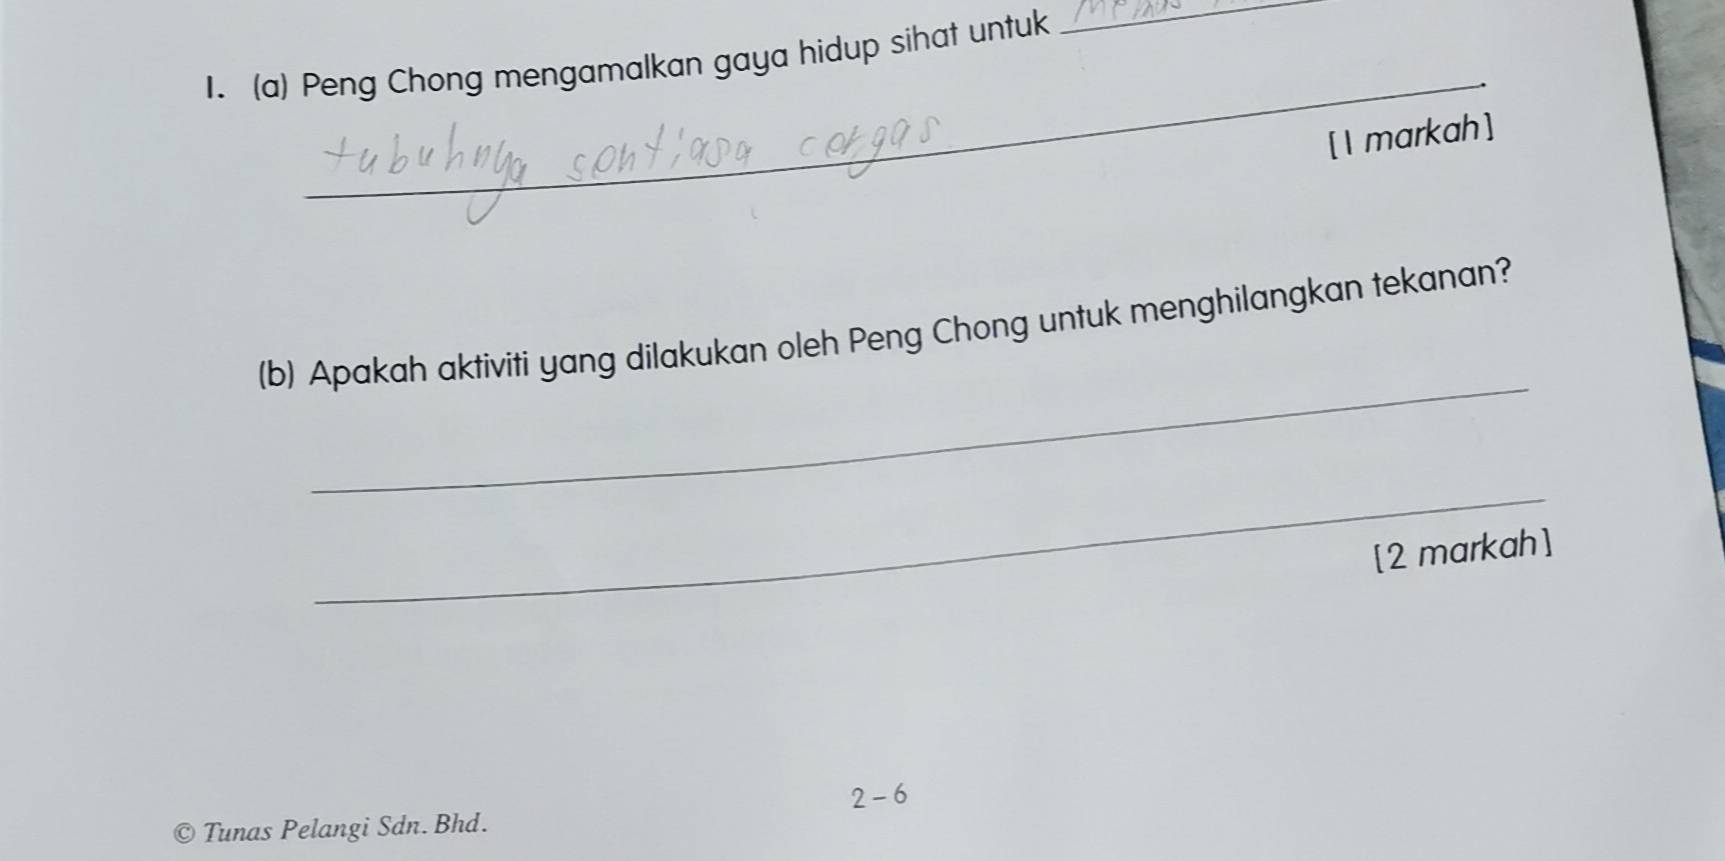 1. (a) Peng Chong mengamalkan gaya hidup sihat untuk
tubuhnya sentiasa cergas.
[1 markah]
(b) Apakah aktiviti yang dilakukan oleh Peng Chong untuk menghilangkan tekanan?
[2 markah]
2 – 6
© Tunas Pelangi Sdn. Bhd.